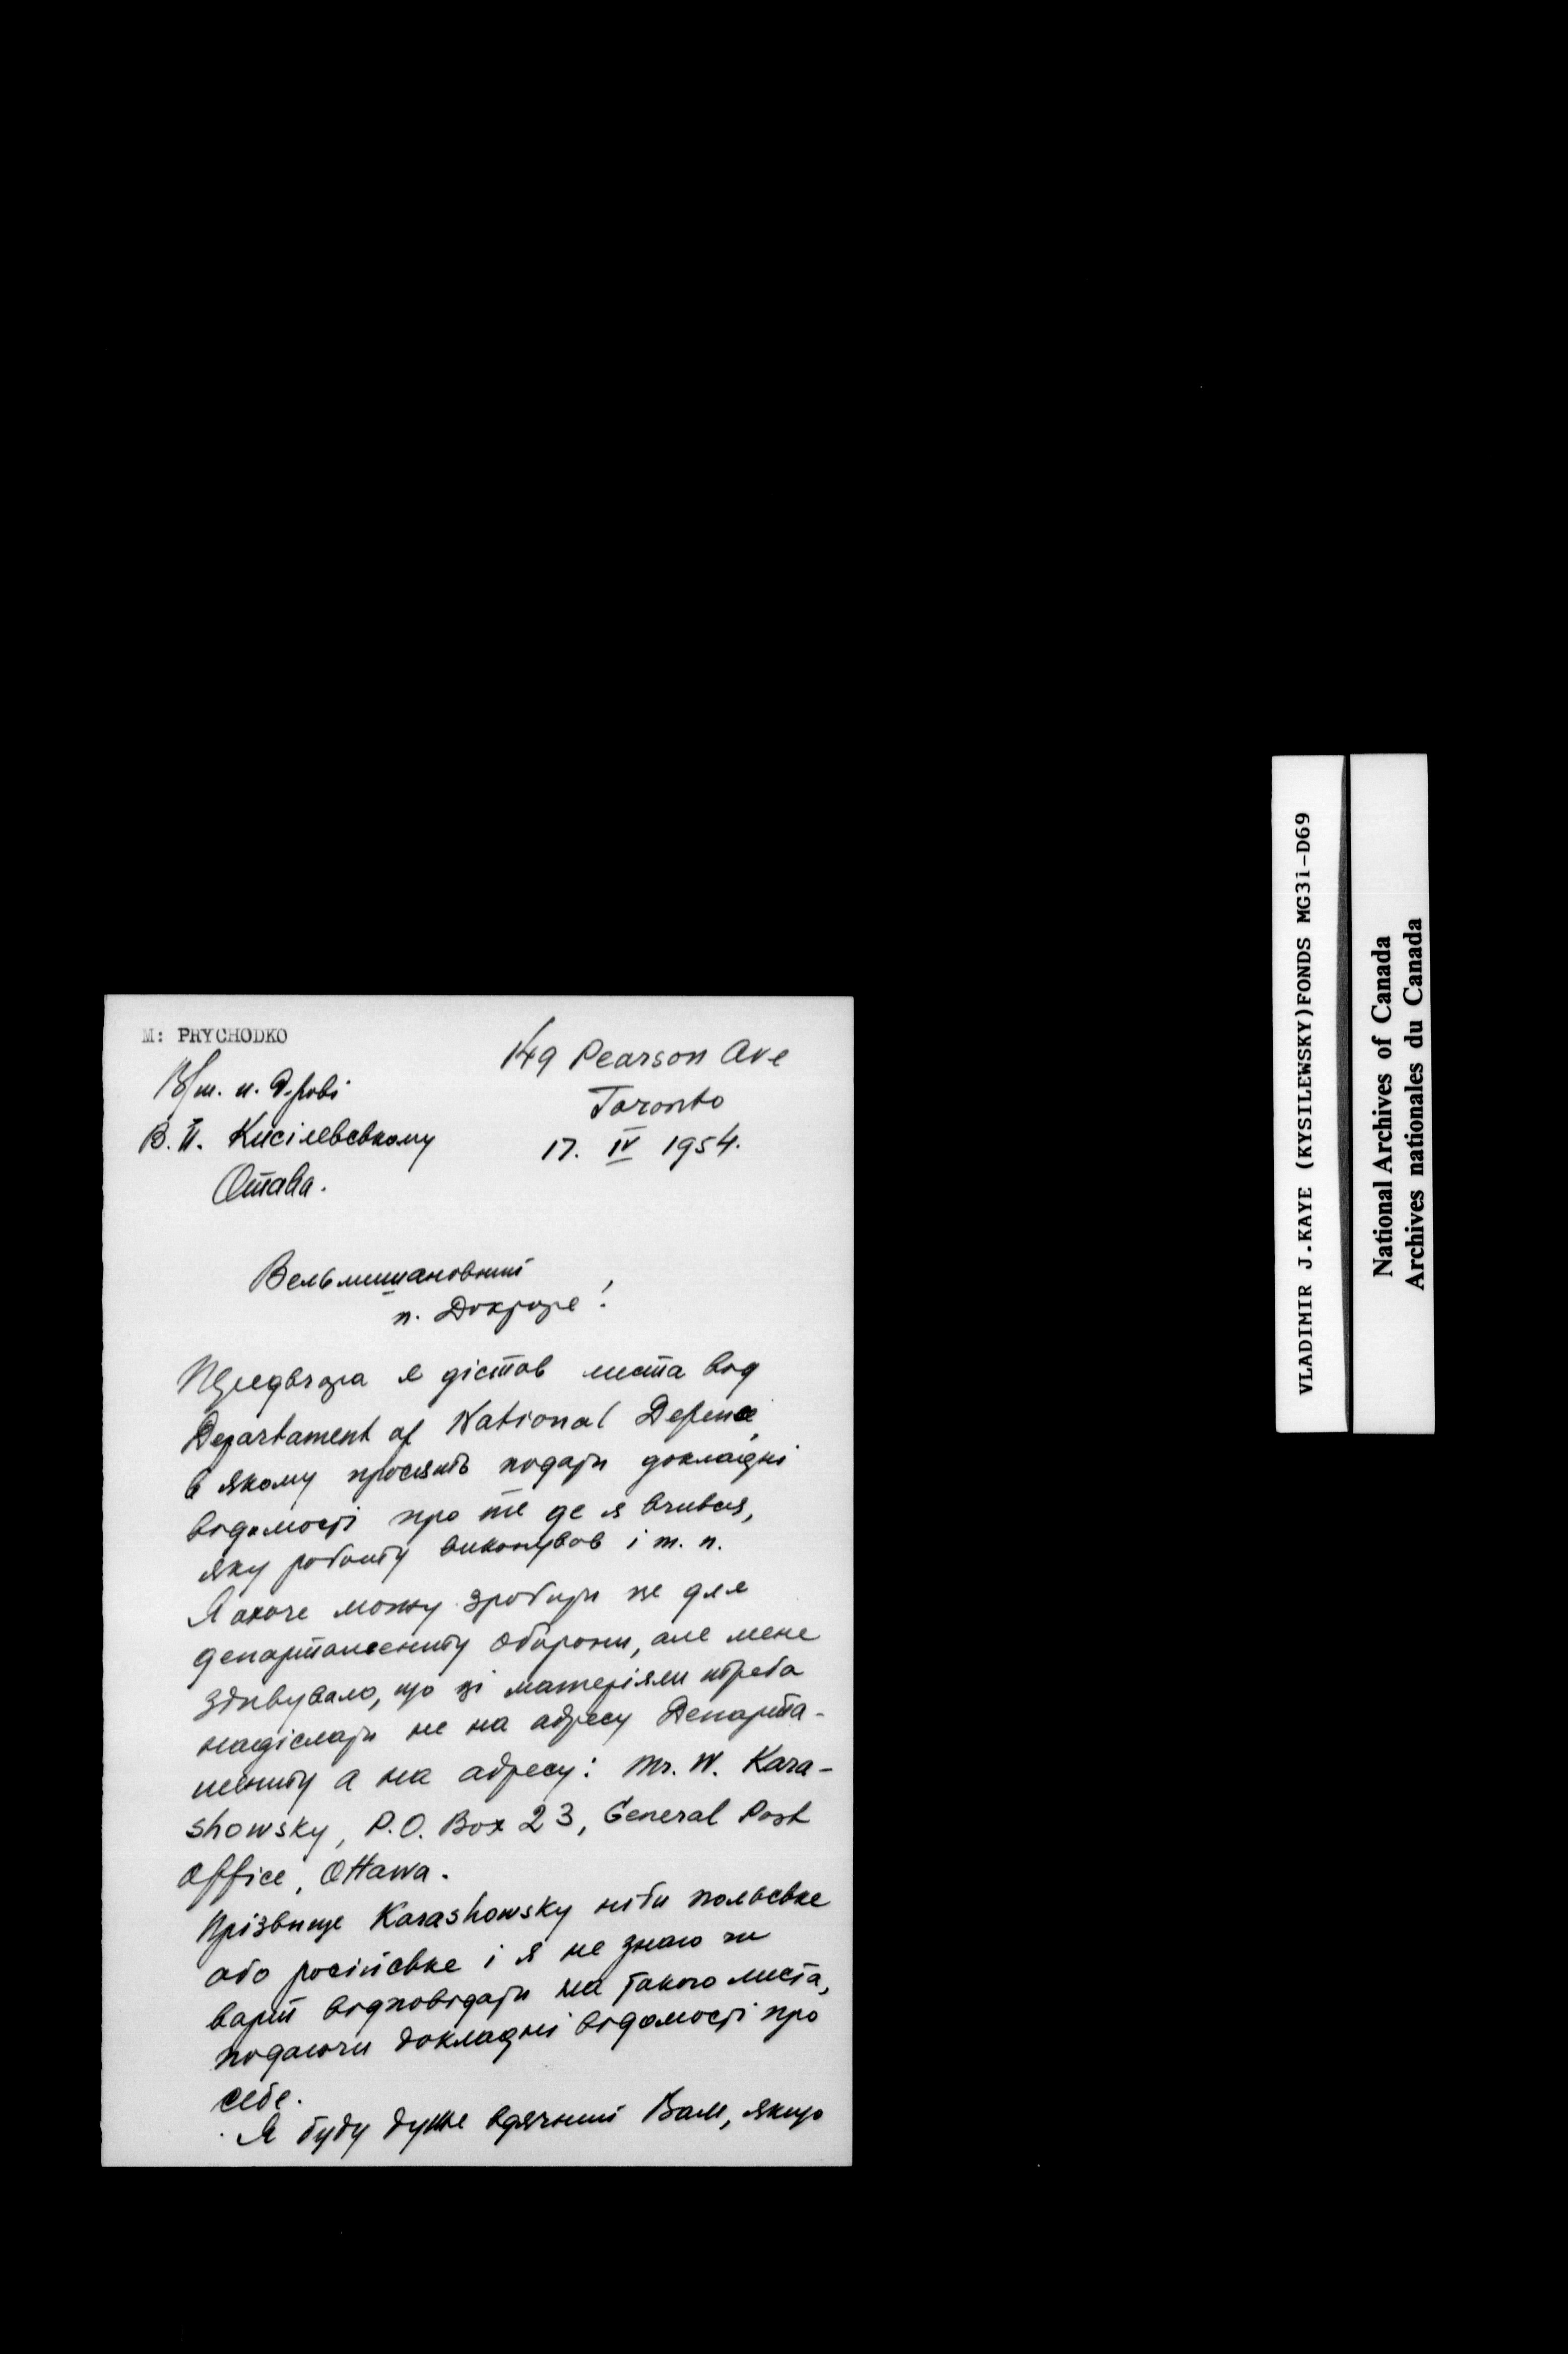 M: PRYCHODKO
149 Pearson Ave
Toronto
17. IV 1954.
В/ш. п. Д-рові
В. Й. Кисілевському
Отава.
Вельмишановний
п. Докторе!
Передвчора я дістав листа від
Departament of National Defence,
в якому просять подати докладні
відомості про те де я вчився,
яку роботу виконував і т. п.
Я охоче можу зробити це для
департаменту оборони, але мене
здивувало, що ці матеріяли треба
надіслати не на адресу Департа-
менту а на адресу: Mr. W. Kara-
showsky, P.O. Box 23, General Post
Office, Ottawa.
Прізвище Karashowsky ніби польське
або російське і я не знаю чи
варт відповідати на такого листа,
подаючи докладні відомості про
себе.
Я буду дуже вдячний Вам, якщо
VLADIMIR J.KAYE (KYSILEWSKY)FONDS MG31-D69
National Archives of Canada
Archives nationales du Canada